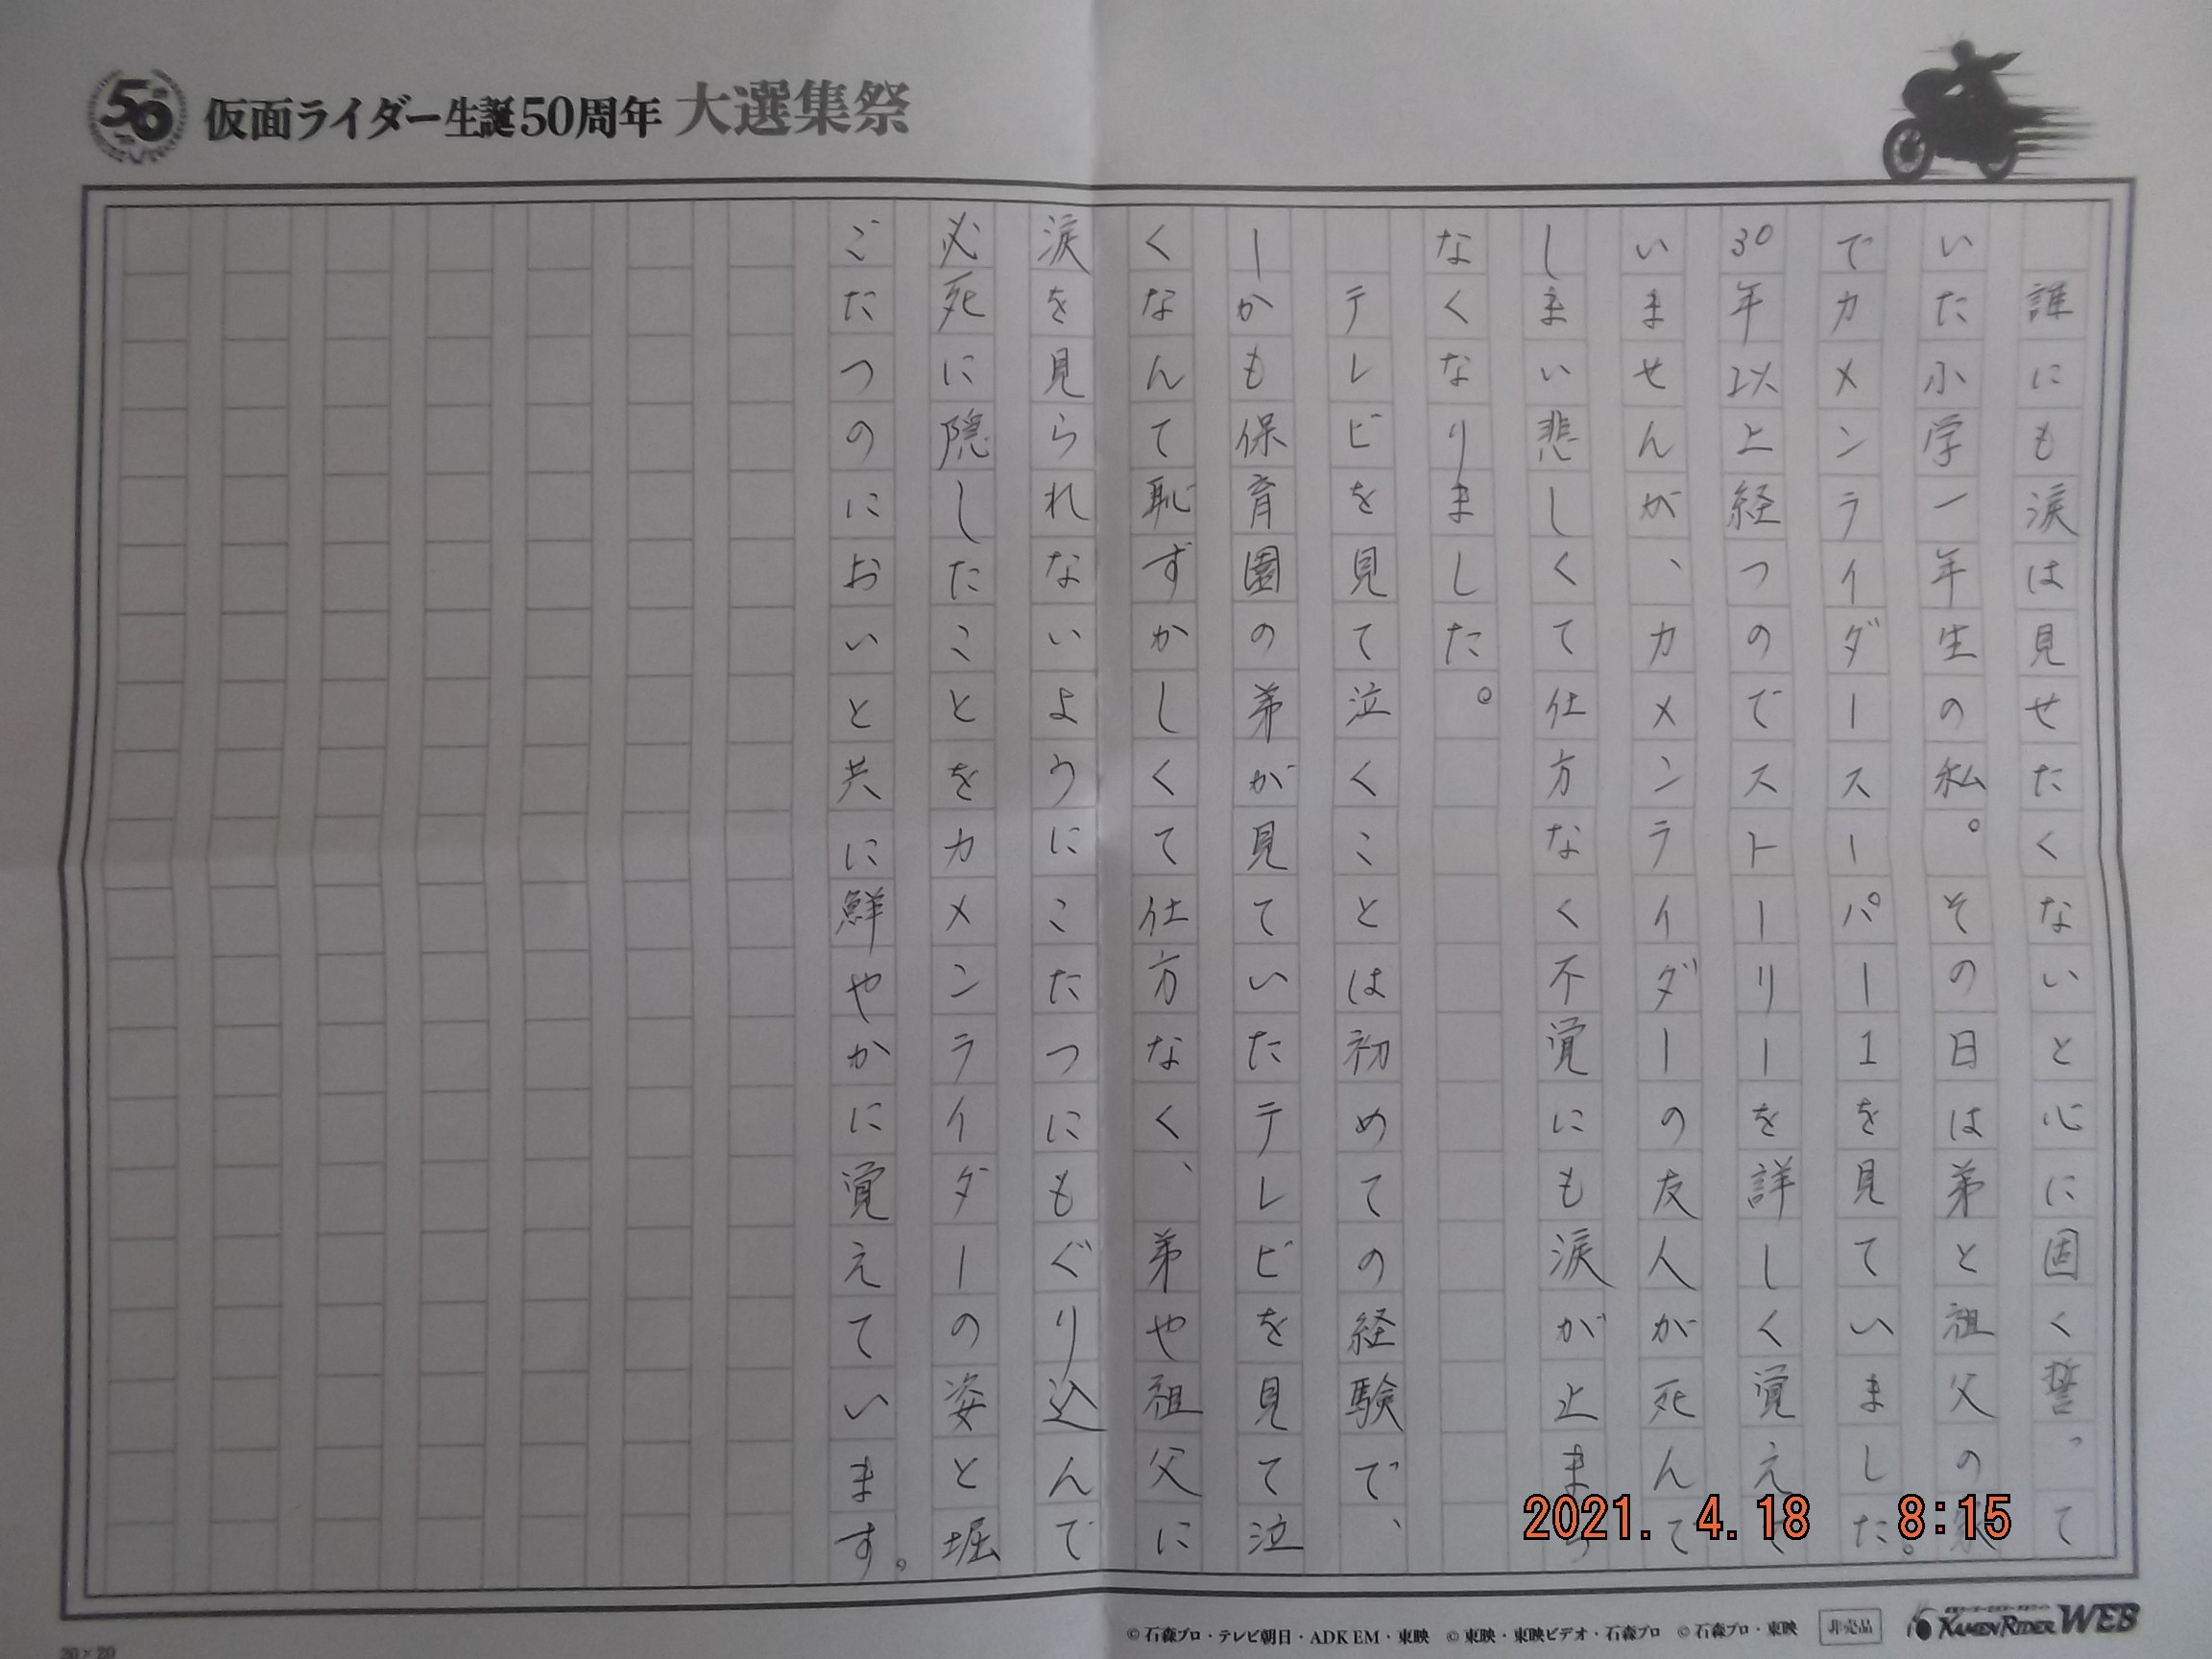 50
仮面ライダー生誕50周年 大選集祭
誰にも涙は見せたくないと心に固く誓って
いた小学一年生の私。その日は弟と祖父の家
でカメンライダースーパー1を見ていました。
30年以上経つのでストーリーを詳しく覚えて
いませんが、カメンライダーの友人が死んで
しまい悲しくて仕方なく不覚にも涙が止まら
なくなりました。
テレビを見て泣くことは初めての経験で、
しかも保育園の弟が見ていたテレビを見て泣
くなんて恥ずかしくて仕方なく、弟や祖父に
涙を見られないようにこたつにもぐり込んで
必死に隠したことをカメンライダーの姿と堀
ごたつのにおいと共に鮮やかに覚えています。
2021. 4.18 8:15
©石森プロ・テレビ朝日・ADK EM・東映 ©東映・東映ビデオ・石森プロ ©石森プロ・東映
非売品
KAMEN RIDER WEB
20×20